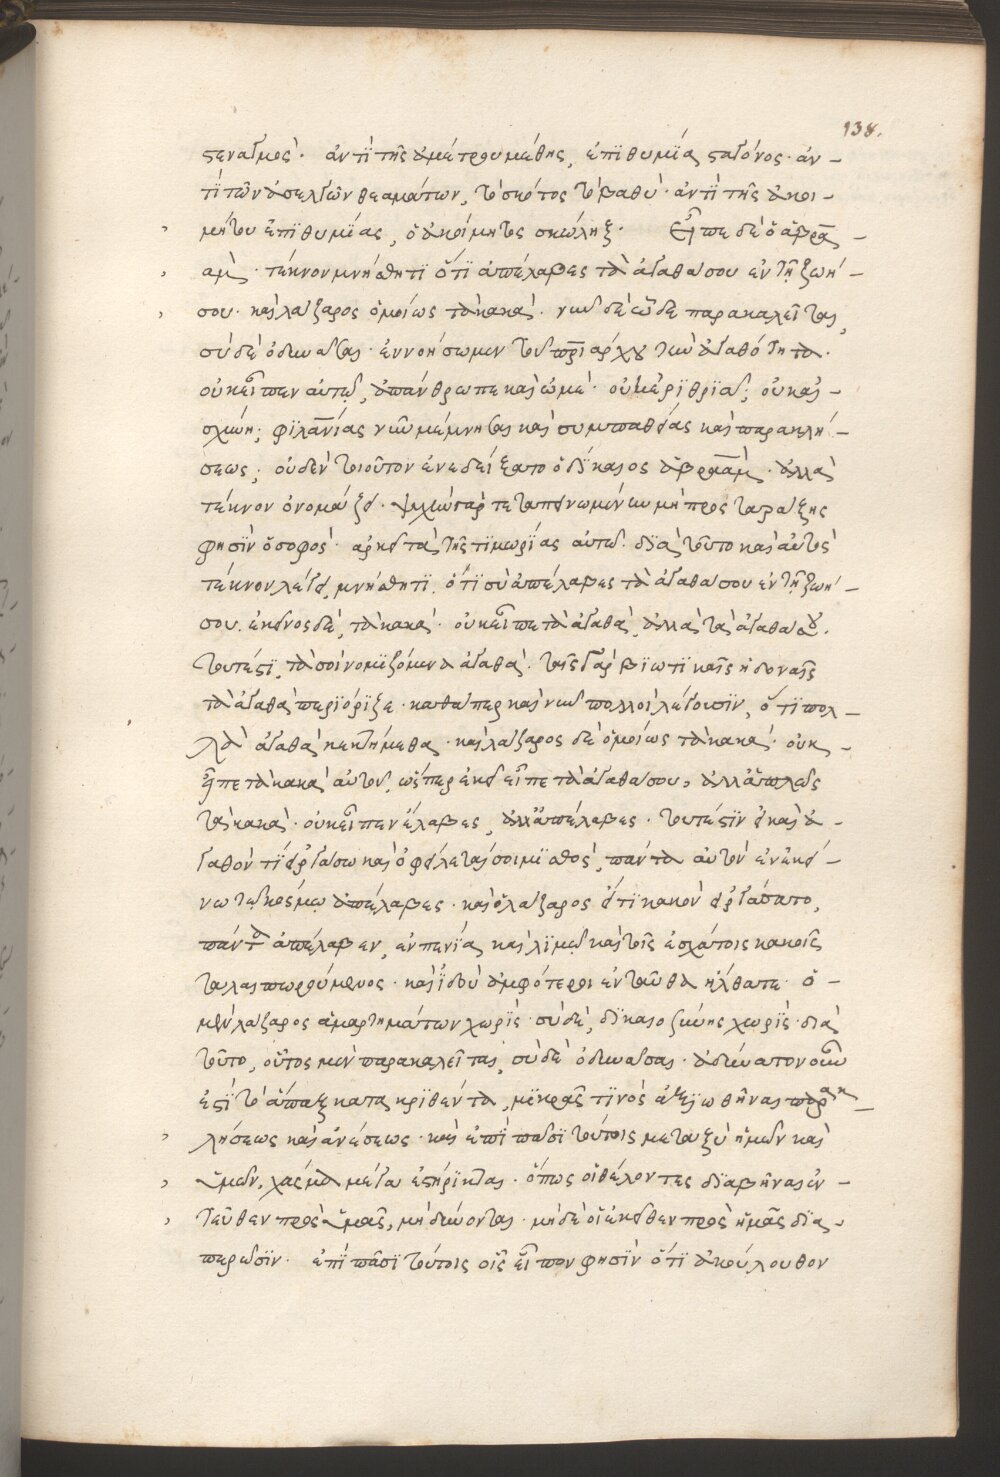 138.
στεναγμός· ἀντὶ τῆς ἀμέτρου μέθης, ἐπιθυμία σταγόνος· ἀν-
τὶ τῶν ἀσελγῶν θεαμάτων, τὸ σκότος τὸ βαθύ· ἀντὶ τῆς ἀκοι-
μήτου ἐπιθυμίας, ὁ ἀκοίμητος σκώληξ· Εἶπε δὲ ὁ ἀβρα-
ὰμ· τέκνον μνήσθητι ὅτι ἀπέλαβες τὰ ἀγαθά σου ἐν τῇ ζωῇ
σου· καὶ λάζαρος ὁμοίως τὰ κακά· νῦν δὲ ὧδε παρακαλεῖται,
σὺ δὲ ὀδυνᾶσαι· ἐννοήσωμεν τοῦ πριάρχου τὴν ἀγαθότητα·
οὐκ εἶπεν αὐτῷ, ἀπάνθρωπε καὶ ὠμέ· οὐκ ; οὐκ αἰ-
σχύνῃ; φιλανίας νῦν μέμνησαι καὶ συμπαθείας καὶ παρακλή-
σεως; οὐδὲν τοιοῦτον ἐνεδείξατο ὁ δίκαιος ἀβραάμ· ἀλλὰ
τέκνον ὀνομάζει· ψυχὴν γὰρ τεταπεινωμένην μὴ προσταράξῃς
φησὶν ὁ σοφός· ἀρκεῖ τὰ τῆς τιμωρίας αὐτῷ· διὰ τοῦτο καὶ αὐτὸς
τέκνον λέγει, μνήσθητι, ὅτι σὺ ἀπέλαβες τὰ ἀγαθά σου ἐν τῇ ζωῇ
σου. ἐκεῖνος δὲ, τὰ κακά· οὐκ εἶπε τὰ ἀγαθὰ, ἀλλὰ τὰ ἀγαθά σου.
τουτέστι, τὰ σοὶ νομιζόμενα ἀγαθά· ταῖς γὰρ βιωτικαῖς ἡδοναῖς
τὰ ἀγαθὰ περιόριζε· καθάπερ καὶ νῦν πολλοὶ λέγουσιν, ὅτι πολ-
λὰ ἀγαθὰ κεκτήμεθα· καὶ λάζαρος δὲ ὁμοίως τὰ κακά· οὐκ
εἶπε τὰ κακὰ αὐτοῦ, ὥσπερ ἐκεῖ εἶπε τὰ ἀγαθά σου, ἀλλ' ἁπλῶς
τὰ κακά· οὐκ εἶπεν ἔλαβες, ἀλλ' ἀπέλαβες· τουτέστιν εἰ καὶ ἀ-
γαθόν τι εἰργάσω καὶ ὀφείλεταί σοι μισθός, πάντα αὐτοῦ ἐν ἐκεί-
νῳ τῷ κόσμῳ ἀπέλαβες· καὶ ὁ λάζαρος εἴ τι κακὸν εἰργάσατο,
πάντα ἀπέλαβεν, ἐν πενίᾳ καὶ λιμῷ καὶ τοῖς ἐσχάτοις κακοῖς
ταλαιπωρούμενος· καὶ ἰδοὺ ἀμφότεροι ἐνταῦθα ἤλθατε· ὁ
μὲν λάζαρος ἁμαρτημάτων χωρίς· σὺ δὲ, δικαιοσύνης χωρίς· διὰ
τοῦτο, οὗτος μὲν παρακαλεῖται, σὺ δὲ ὀδυνᾶσαι· ἀδύνατον οὖν
ἐστὶ τὸ ἅπαξ κατακριθέντα, μικρᾶς τινὸς ἀξιωθῆναι παρακ-
λήσεως καὶ ἀνέσεως· καὶ ἐπὶ πᾶσι τούτοις μεταξὺ ἡμῶν καὶ
ὑμῶν, χάσμα μέγα ἐστήρικται· ὅπως οἱ θέλοντες διαβῆναι ἐν-
τεῦθεν πρὸς ὑμᾶς, μὴ δύνονται· μὴ δὲ οἱ ἐκεῖθεν πρὸς ἡμᾶς δια-
περῶσιν· ἐπὶ πᾶσι τούτοις οἷς εἶπον φησὶν ὅτι ἀκόλουθον